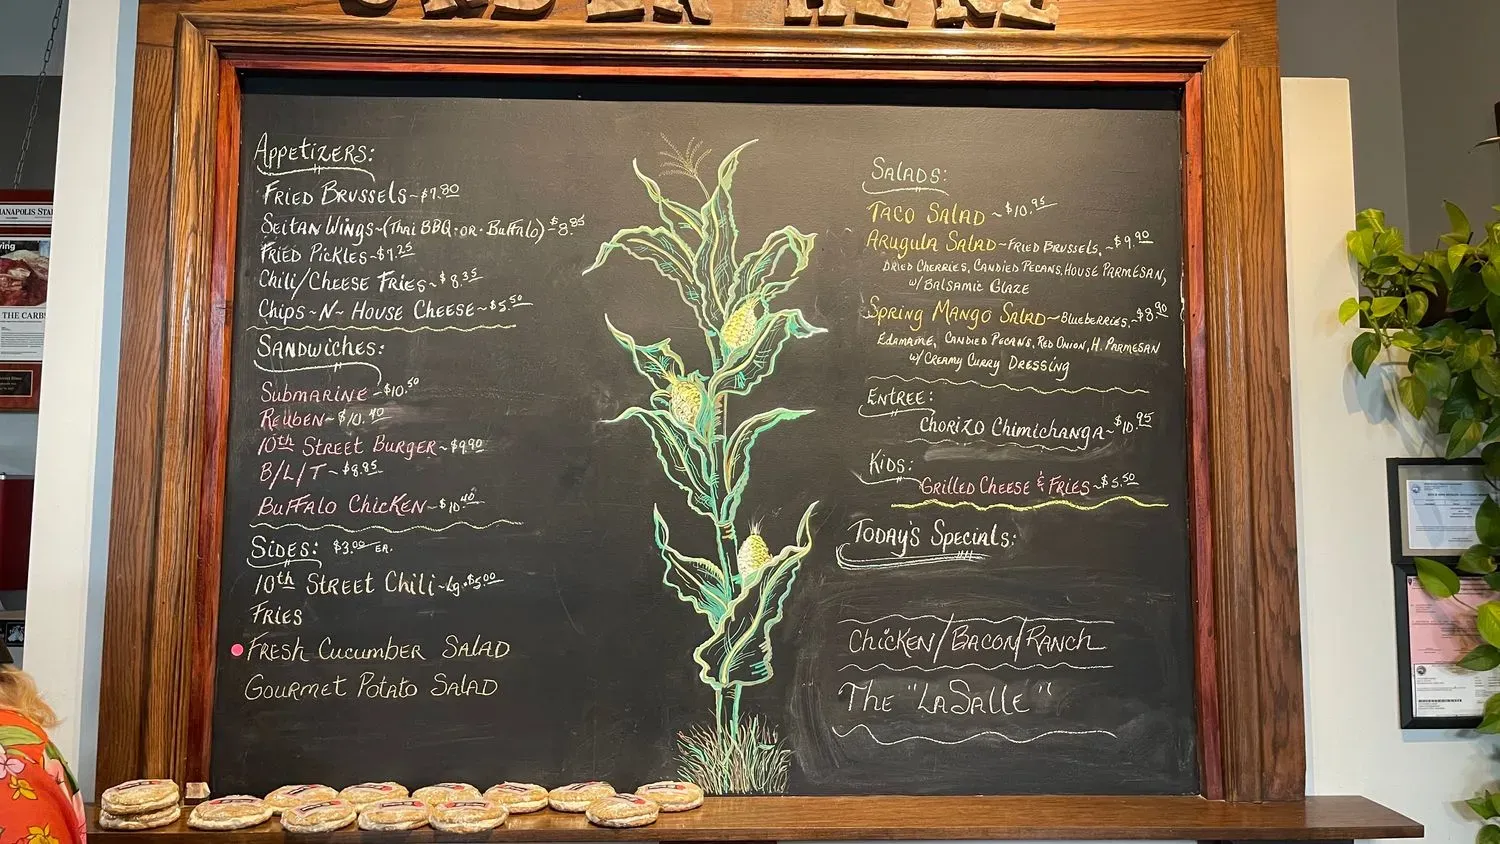 ORDER HERE
APPETIZERS:
FRIED BRUSSELS~$7.80
SEITAN WINGS~(THAI BBQ·OR·BUFFALO) $8.85
FRIED PICKLES~$7.25
CHILI/CHEESE FRIES~$8.35
CHIPS~N~HOUSE CHEESE~$5.50
SANDWICHES:
SUBMARINE~$10.50
REUBEN~$10.40
10th STREET BURGER~$9.90
B/L/T~$8.85
BUFFALO CHICKEN~$10.40
SIDES: $3.00 EA.
10th STREET CHILI~Lg.$5.00
FRIES
FRESH CUCUMBER SALAD
GOURMET POTATO SALAD
SALADS:
TACO SALAD~$10.95
ARUGULA SALAD~FRIED BRUSSELS,~$9.90
DRIED CHERRIES, CANDIED PECANS, HOUSE PARMESAN,
W/BALSAMIC GLAZE
SPRING MANGO SALAD~BLUEBERRIES,~$8.90
EDAMAME, CANDIED PECANS, RED ONION, H. PARMESAN
W/ CREAMY CURRY DRESSING
ENTREE:
CHORIZO CHIMICHANGA~$10.95
KIDS:
GRILLED CHEESE & FRIES~$5.50
TODAY'S SPECIALS:
CHICKEN/BACON/RANCH
THE "LASALLE"
ANAPOLIS STA
THE CARBS